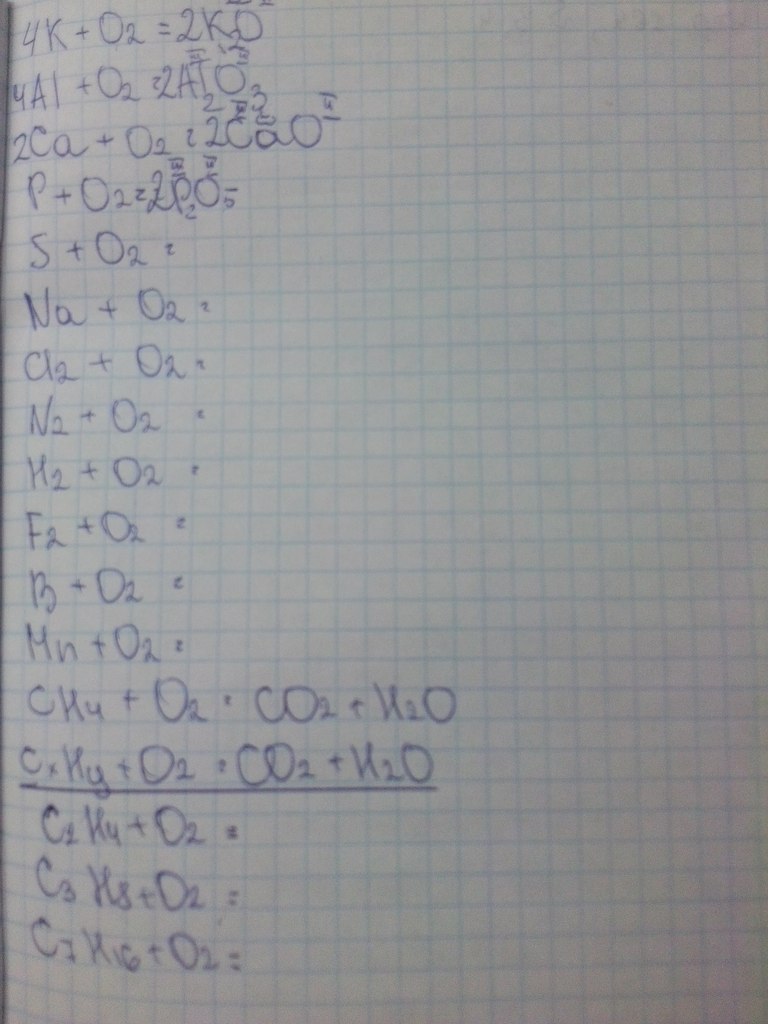 4K + O2 = 2K2O
4Al + O2 = 2Al2O3
2Ca + O2 = 2CaO
P + O2 = 2P2O5
S + O2 =
Na + O2 =
Cl2 + O2 =
N2 + O2 =
H2 + O2 =
F2 + O2 =
B + O2 =
Mn + O2 =
CH4 + O2 = CO2 + H2O
CxHy + O2 = CO2 + H2O
C2H4 + O2 =
C3H8 + O2 =
C7H16 + O2 =